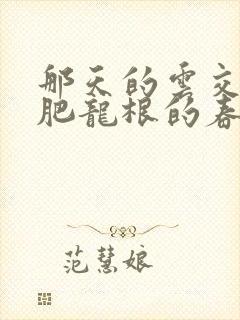 那天的雲交
肥龍根的春
范慧娘